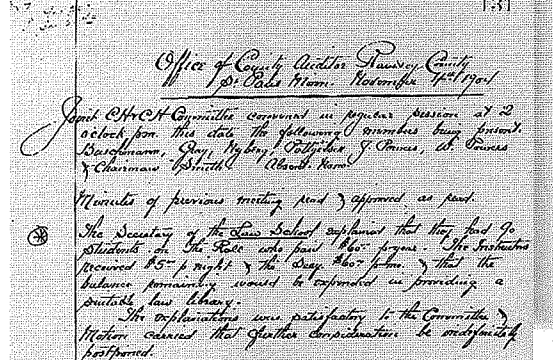 Office of County Auditor Ramsey County
St Paul Minn. November 4th 1901
Joint CH & CH Committee convened in regular session at 2
oclock pm. this date the following members being present.
Buschmann, Gray, Nyberg, J. Powers, W. Powers
& Chairman Smith Absent. None.
Minutes of previous meeting read & approved as read.
The Secretary of the Law School explained that they had 90
students on the Role who paid $60 p year. The Instructors
received $5 p night & the Secy. $60 p mo. & that the
balance remaining would be expended in providing a
suitable law library.
The explanations was satisfactory to the Committee &
Motion carried that further consideration be indefinately
postponed.